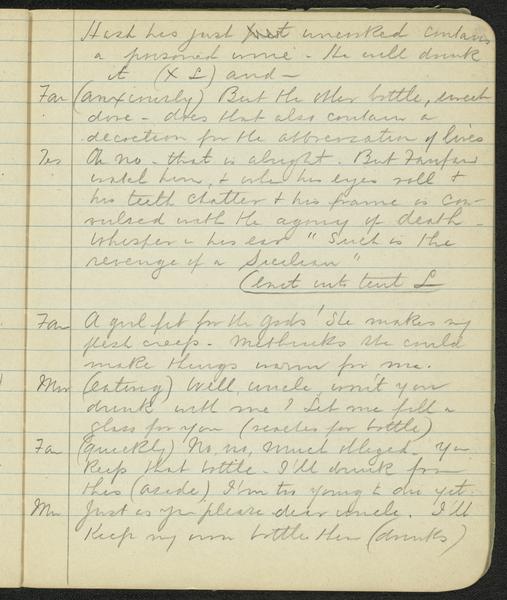 Hash has just uncorked contains
a poisoned wine - He will drink
it (X L) and -
Fan (anxiously) But the other bottle, sweet
dove - does that also contain a
decoction for the abbreviation of lives
Tes Oh no - that is alright. But Fanfan
watch him, & when his eyes roll &
his teeth chatter & his frame is con-
vulsed with the agony of death -
Whisper in his ear "Such is the
revenge of a Sicilian"
(exit into tent L
Fan A girl fit for the gods! She makes my
flesh creep. Methinks she could
make things warm for me.
(eating) Well, uncle, won't you
drink with me? Let me fill a
glass for you (reaches for bottle)
Fan (quickly) No, no, much obliged. You
keep that bottle - I'll drink from
this (aside) I'm too young to die yet.
Just as you please dear uncle. I'll
keep my own bottle then (drinks)